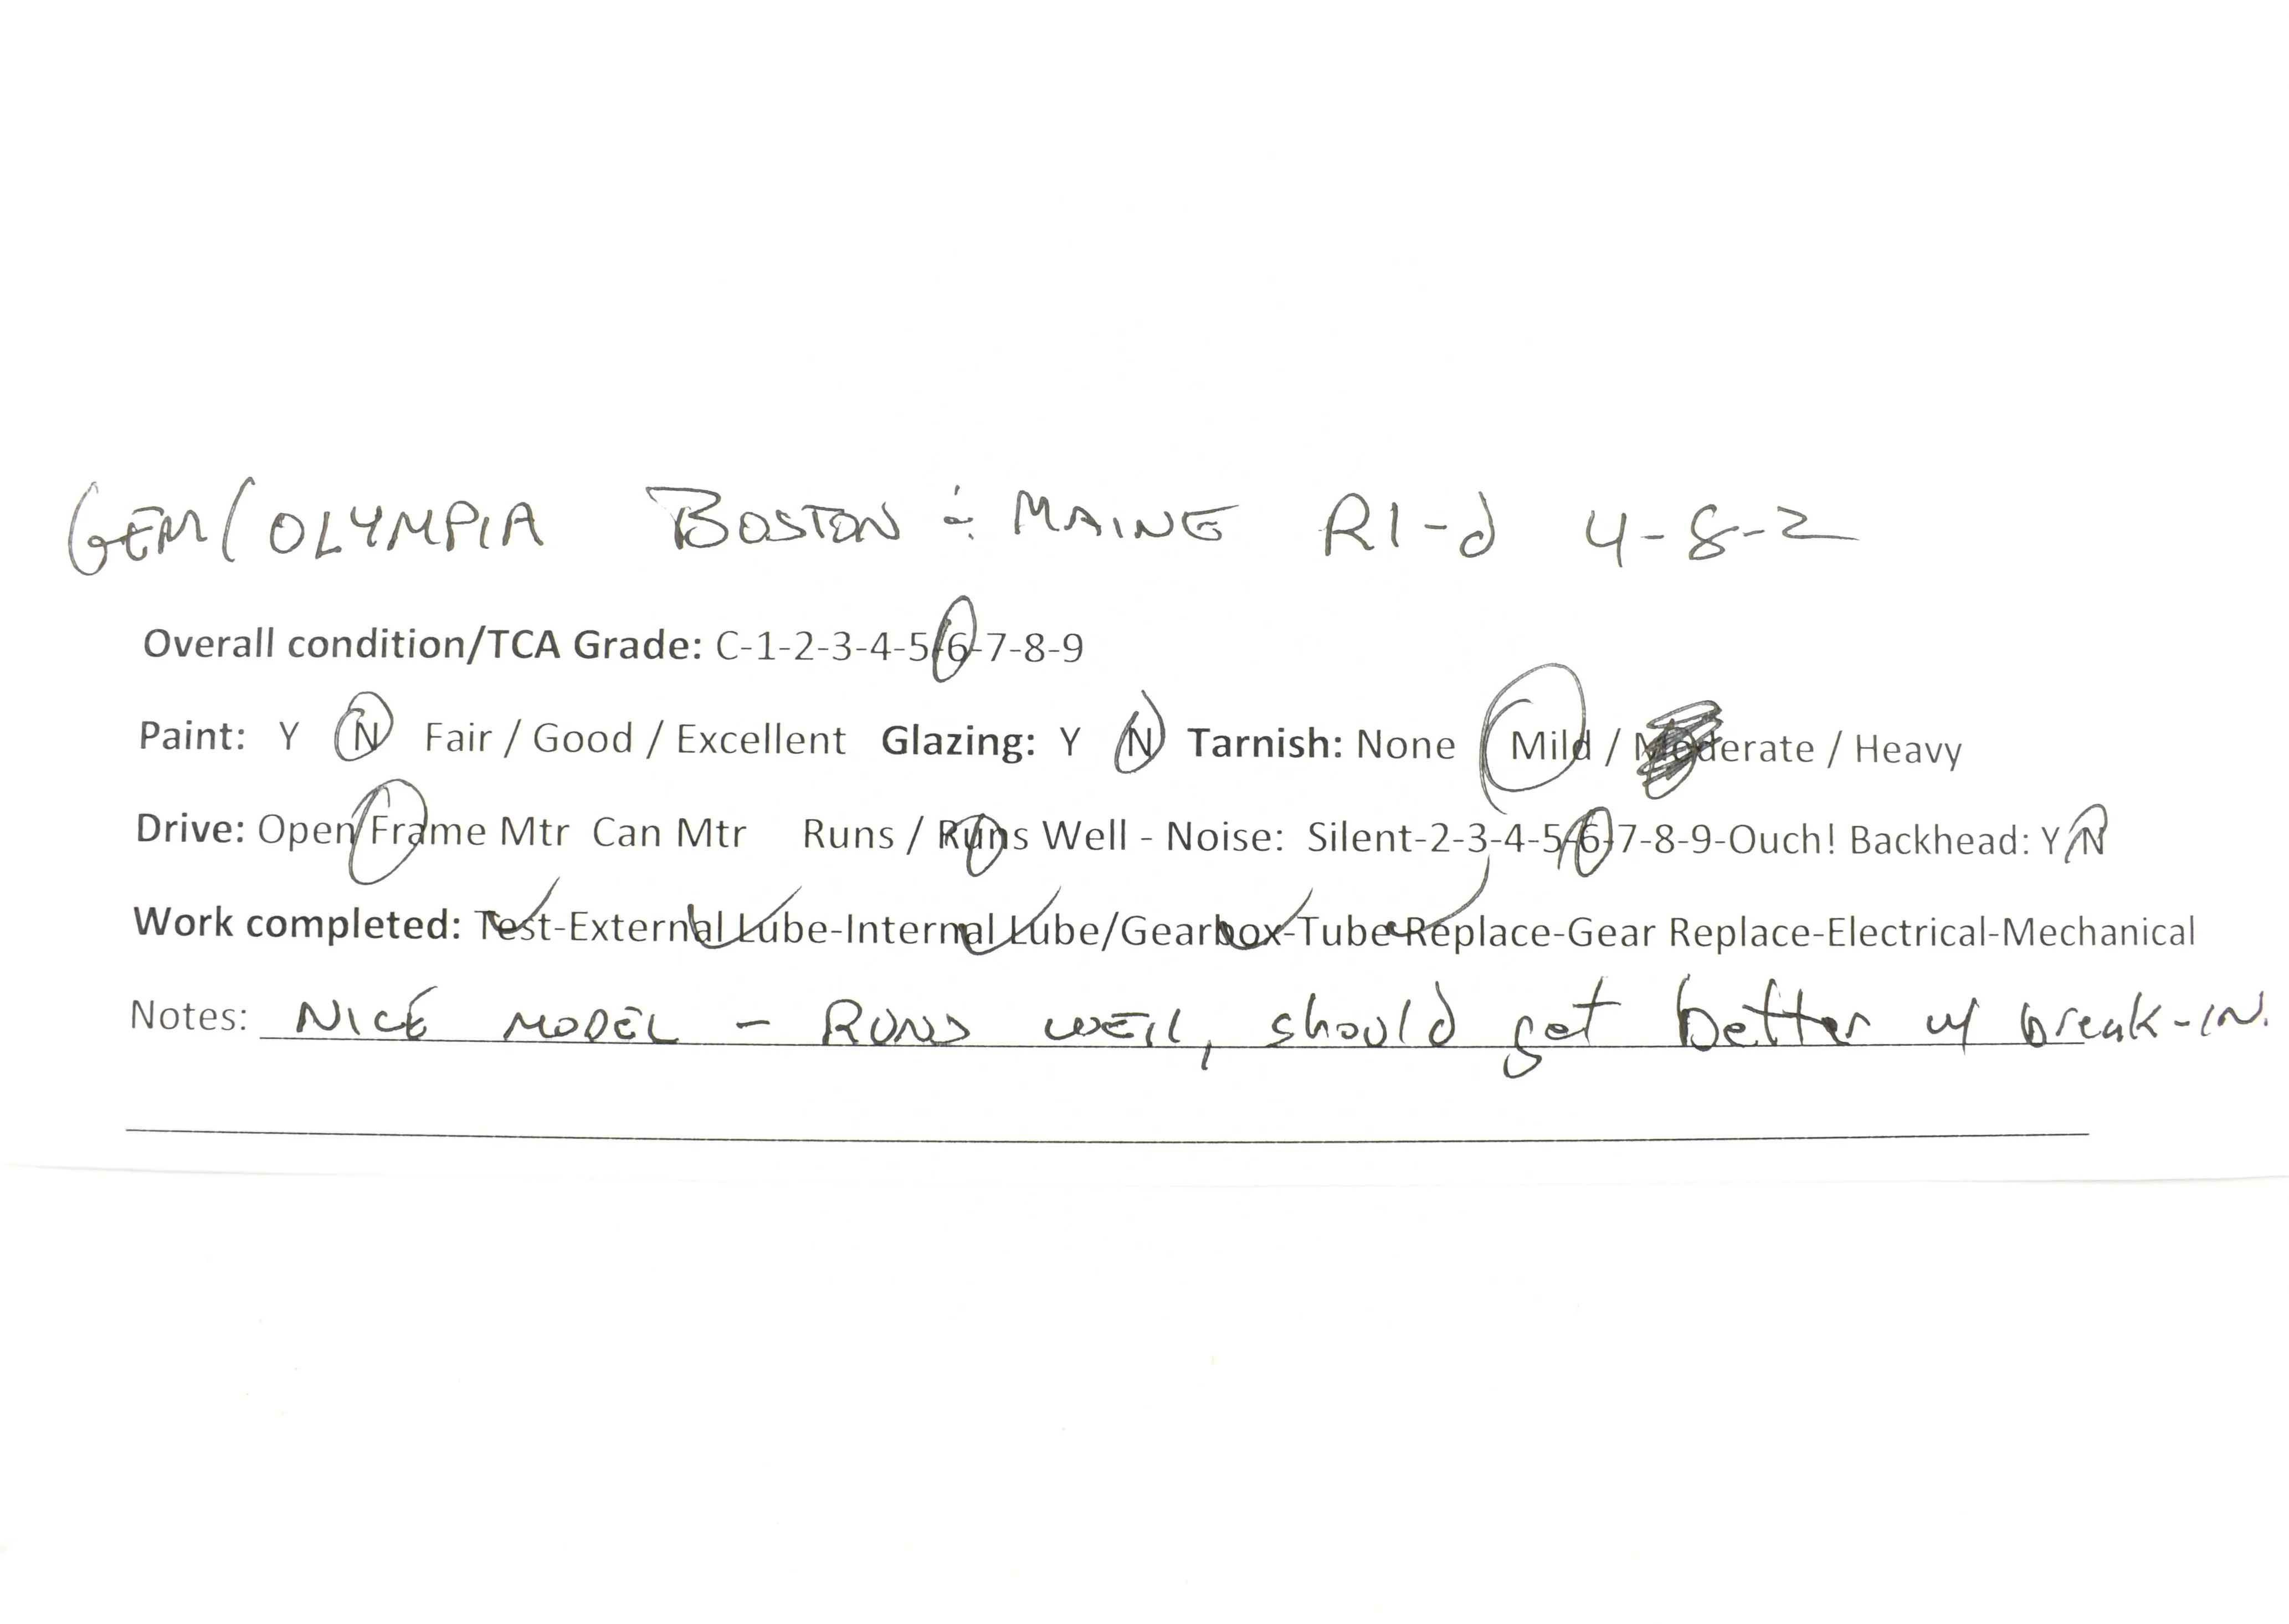 GEM/OLYMPIA BOSTON & MAINE R1-d 4-8-2
Overall condition/TCA Grade: C-1-2-3-4-5-6-7-8-9
Paint: Y N Fair / Good / Excellent Glazing: Y N Tarnish: None Mild / Moderate / Heavy
Drive: Open Frame Mtr Can Mtr Runs / Runs Well - Noise: Silent-2-3-4-5-6-7-8-9-Ouch! Backhead: Y N
Work completed: Test-External Lube-Internal Lube/Gearbox-Tube Replace-Gear Replace-Electrical-Mechanical
Notes: NICE MODEL - RUNS WELL, should get better w/ break-IN.